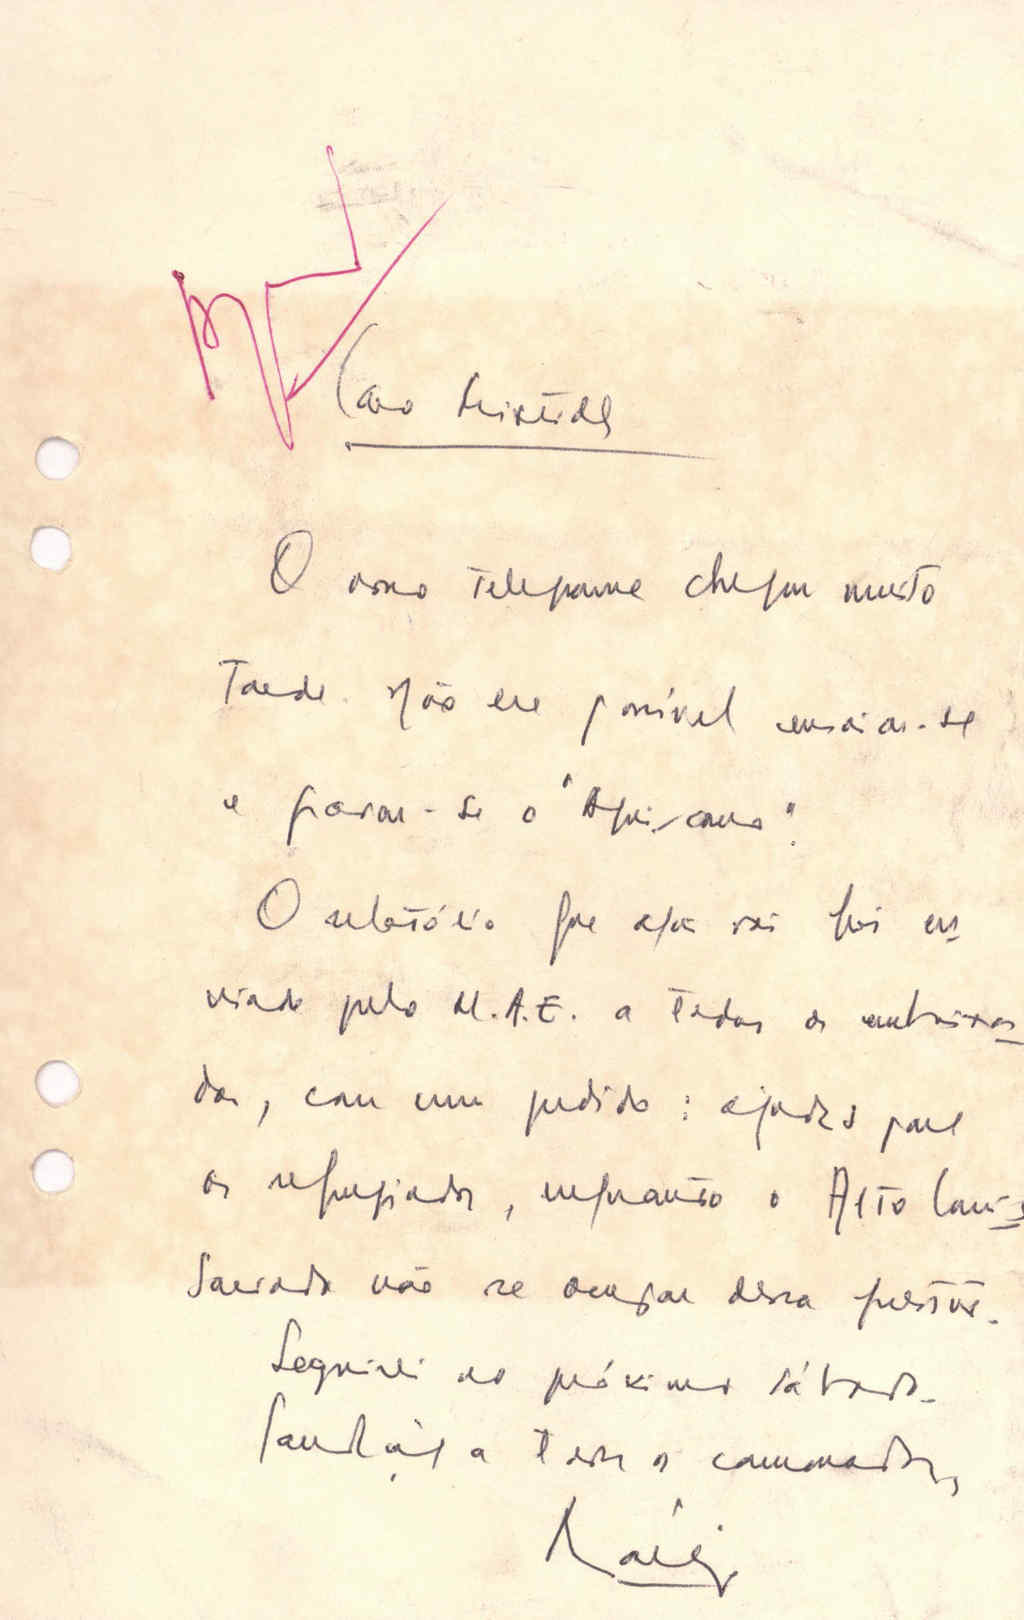 Caro Aristides
O vosso telegrama chegou muito
tarde. Não era possível ensaiar-se
e gravar-se o "Africano".
O relatório que aqui vai foi en-
viado pelo M.A.E. a todos os embaixa-
dor, com um pedido: ajudas para
os refugiados, enquanto o Alto Comis-
sariado não se ocupar dessa questão.
Seguirei no próximo sábado.
Saudações a todos os camaradas,